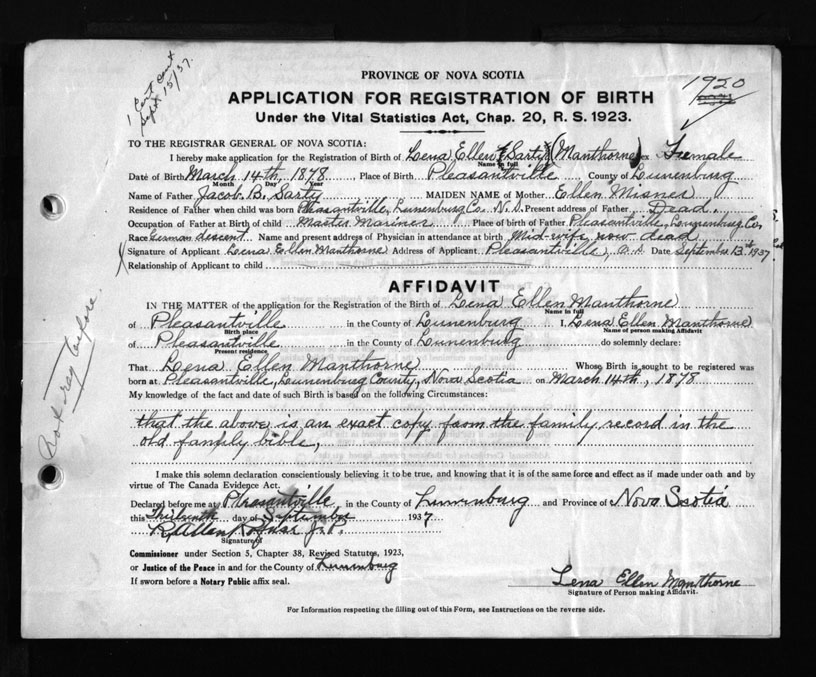 1 Cert sent
Sept 15/37.
PROVINCE OF NOVA SCOTIA
1920
APPLICATION FOR REGISTRATION OF BIRTH
Under the Vital Statistics Act, Chap. 20, R. S. 1923.
TO THE REGISTRAR GENERAL OF NOVA SCOTIA:
I hereby make application for the Registration of Birth of Lena Ellen Sarty (Manthorne) Sex Female
Name in full
Date of Birth March 14th, 1878 Place of Birth Pleasantville County of Lunenburg
Month Day Year
Name of Father Jacob B. Sarty MAIDEN NAME of Mother Ellen Misner
Residence of Father when child was born Pleasantville, Lunenburg Co. N.S. Present address of Father Dead.
Occupation of Father at Birth of child Master Mariner Place of birth of Father Pleasantville, Lunenburg Co,
Race German descent. Name and present address of Physician in attendance at birth Mid-wife, now dead
Signature of Applicant Lena Ellen Manthorne Address of Applicant Pleasantville, N.S. Date September 13st 1937
Relationship of Applicant to child
AFFIDAVIT
IN THE MATTER of the application for the Registration of the Birth of Lena Ellen Manthorne
Name in full
of Pleasantville in the County of Lunenburg I, Lena Ellen Manthorne
Birth place Name of person making Affidavit
of Pleasantville in the County of Lunenburg do solemnly declare:
Present residence
That Lena Ellen Manthorne Whose Birth is sought to be registered was
born at Pleasantville, Lunenburg County, Nova Scotia on March 14th, 1878
My knowledge of the fact and date of such Birth is based on the following Circumstances:
that the above is an exact copy from the family record in the
old family bible,
Not reg before.
I make this solemn declaration conscientiously believing it to be true, and knowing that it is of the same force and effect as if made under oath and by
virtue of The Canada Evidence Act.
Declared before me at Pleasantville in the County of Lunenburg and Province of Nova Scotia
this day of September 1937
R Allan J.P.
Signature of
Commissioner under Section 5, Chapter 38, Revised Statutes, 1923,
or Justice of the Peace in and for the County of Lunenburg
If sworn before a Notary Public affix seal.
Lena Ellen Manthorne
Signature of Person making Affidavit.
For Information respecting the filling out of this Form, see Instructions on the reverse side.